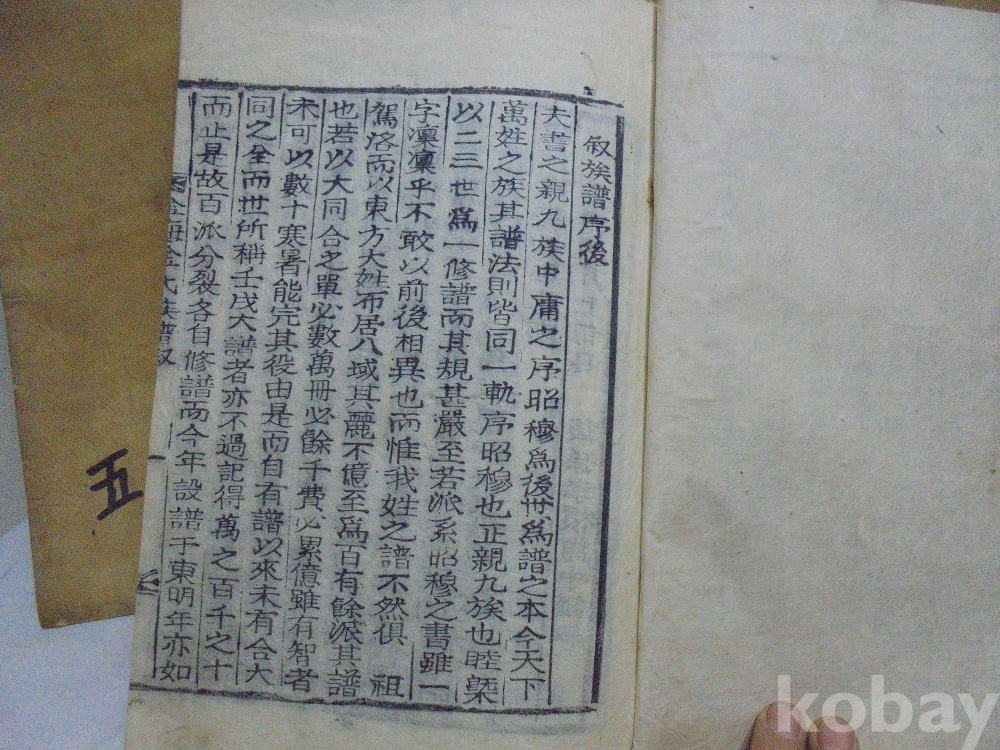 叙族譜序後
夫書之親九族中庸之序昭穆爲後世爲譜之本今天下
萬姓之族其譜法則皆同一軌序昭穆也正親九族也睦槩
以二三世爲一修譜而其規甚嚴至若派系昭穆之書雖一
字凜凜乎不敢以前後相異也而惟我姓之譜不然俱 祖
駕洛而以東方大姓布居八域其麗不億至爲百有餘派其譜
也若以大同合之單必數萬冊必餘千費必累億雖有智者
未可以數十寒暑能完其役由是而自有譜以來未有合大
同之全而世所稱壬戌大譜者亦不過記得萬之百千之十
而止是故百派分裂各自修譜而今年設譜于東明年亦如
金海金氏族譜叙
一
五
kobay